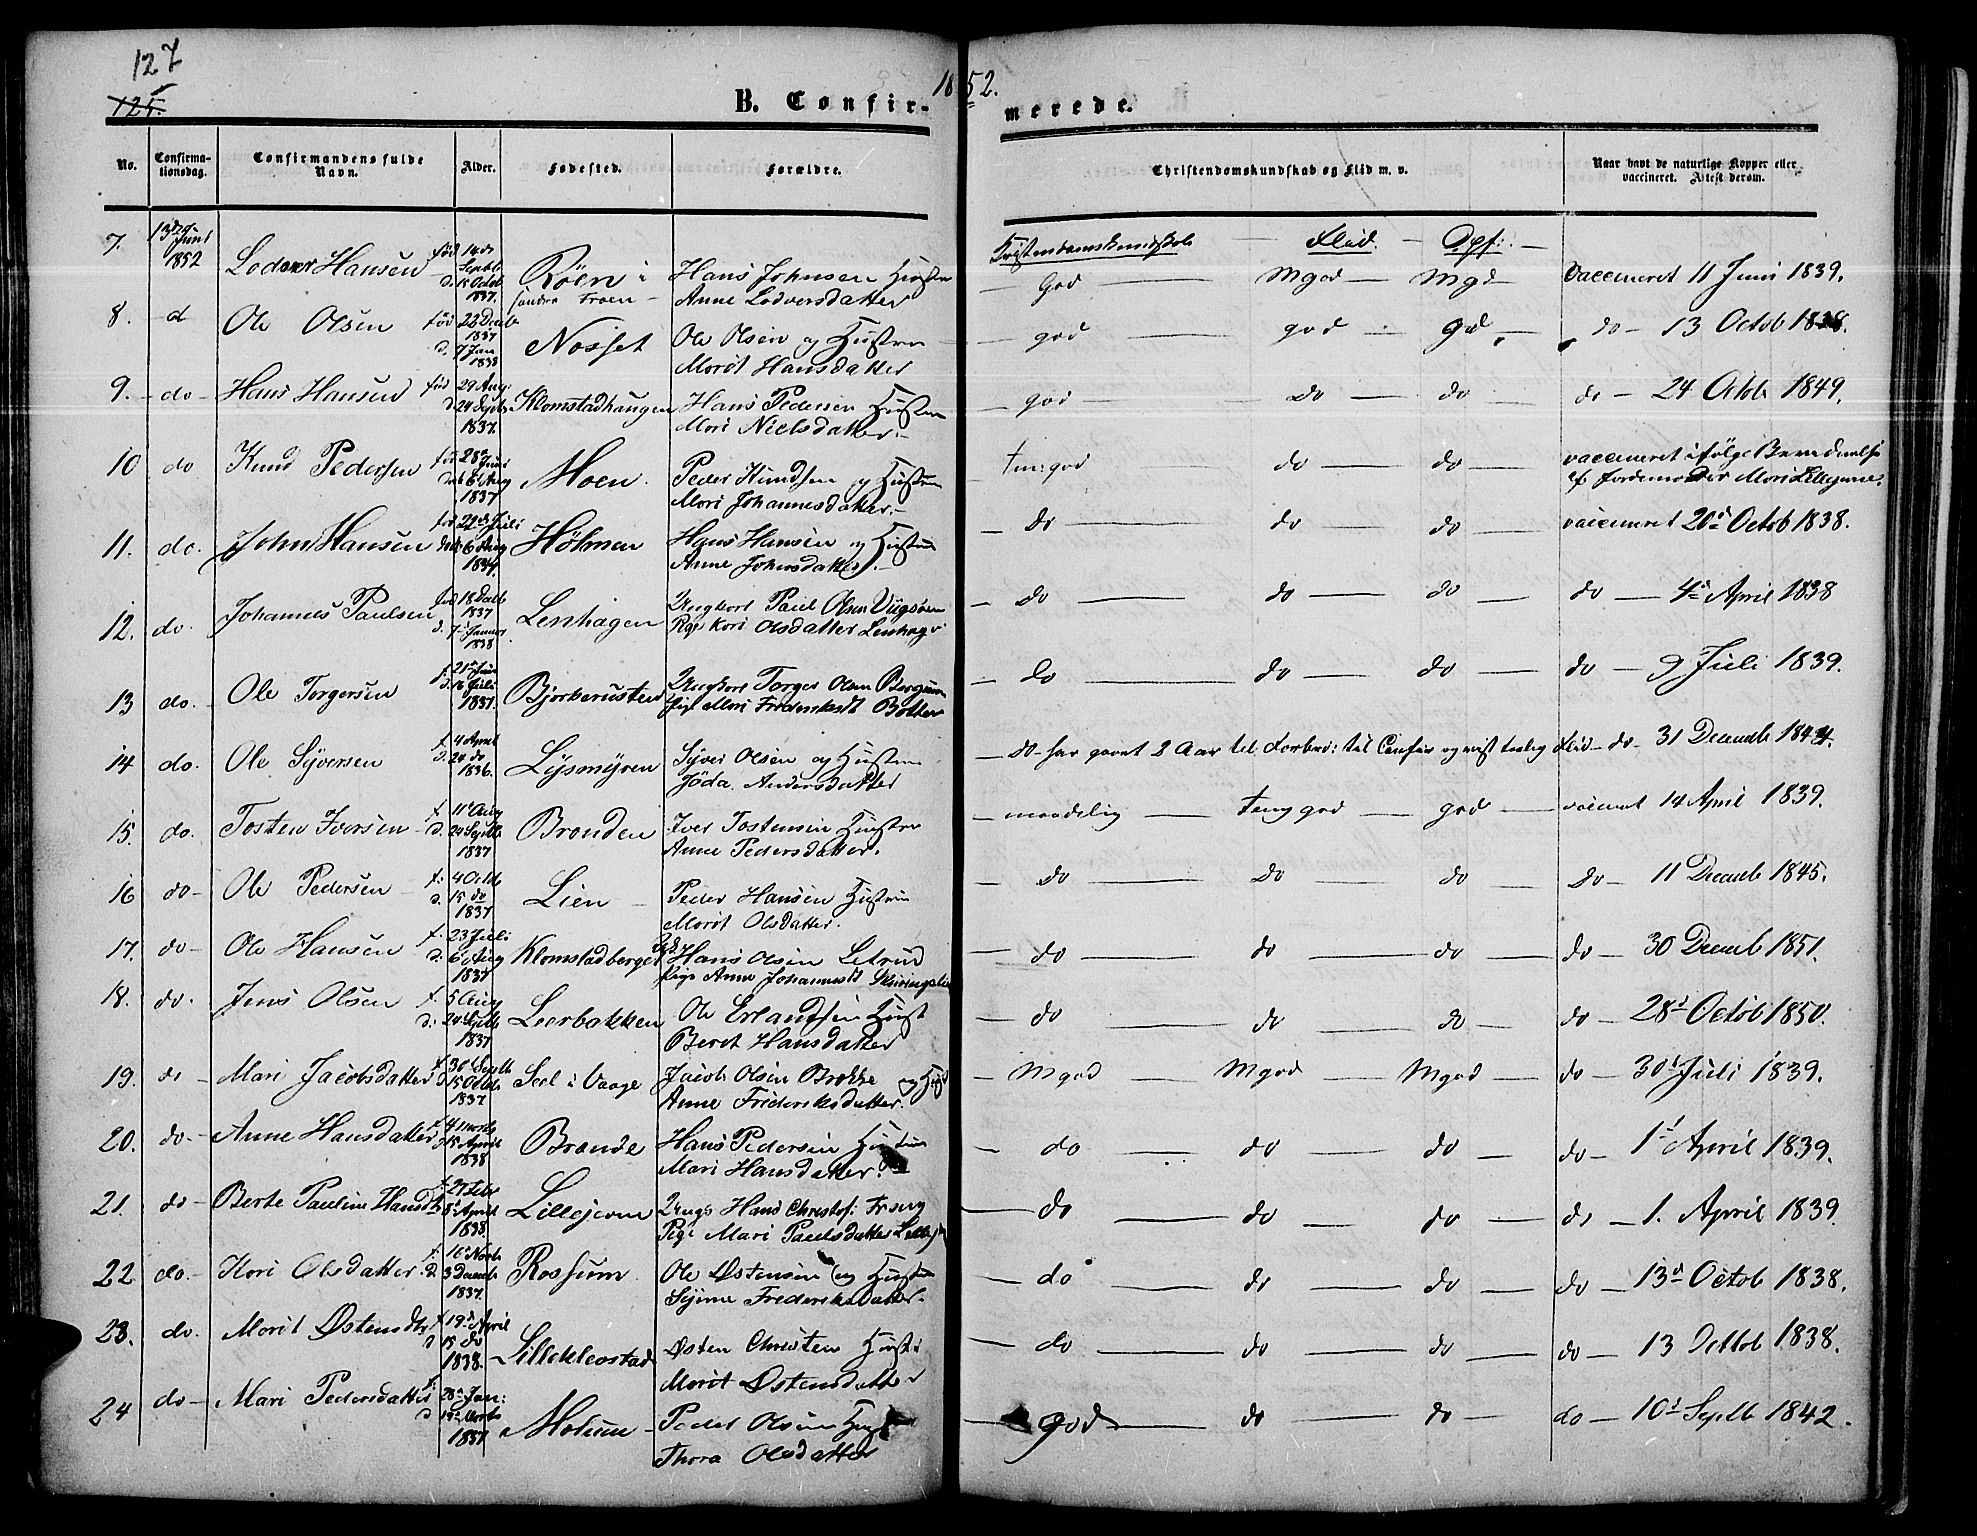 127
125.
1852.
B. Confir-
merede.
No.
Confirma-
tionsdag.
Confirmandens fulde
Navn.
Alder.
Fødested.
Forældre.
Christendomskundskab og Flid m. v.
Naar havt de naturlige Kopper eller
vaccineret. Attest derom.
Kristendomskundskab — Flid. — Opf: —
7. Juni 1852 Lodver Hansen Røen i søndre Froen — Hans Johnsen
Anne Lodversdatter
God — Mgod — Mgd — Vaccineret 11 Juni 1839.
8. d Ole Olsen fød 23 Decb 1837 d. 7 Jan 1838 Nosset Ole Olsen og Hustru
Morit Hansdatter
god — god — gd — do — 13 Octob 1838.
9. do — Hans Hansen fød 29 Aug: d. 24 Septb 1837. Klomstadhaugen Hans Pedersen Hustru
Mori Nielsdatter. —
god — do — do — do — 24 Octob 1849.
10 do Knud Pedersen 1837 Moen. Peder Knudsen og Hustru
Mori Johannesdatter. —
do — do — vaccineret ifølge
Mori
11. do. John Hansen fød 22de Juli 6 Aug Hølmen Hans Hansen og Hustru
Anne Johnsdatter. —
do — do — do — vaccineret 20d Octob 1838.
12. do. Johannes Paulsen fød 1837 d. 7 Januar 1838 Lenhagen Ungkarl Paul Olsen
Pige Kari Olsdatter
do — do — do — do — 4de April 1838
13 do. Ole Torgersen 1837. Bjørkerusten Ungkarl Torger Olsen
Pige Mari
do — do — do — do — 9 Juli 1839.
14 do. Ole Syversen f. 4 April d. 24 do 1836. Lysmyren Syver Olsen og Hustru
Andersdatter
do — har gaaet 2 Aar til Forber: til Confir og vist — do — 31 Decemb
15. do. Tosten Iversen f. 11 Aug d. 24 Septb 1837 Brænden Iver Tostensen Hustru
Anne Pedersdatter.
maadelig — temg god — god — 14 April 1839.
16 do — Ole Pedersen f. 4 Octb d. 15 do 1837 Lien — Peder Hansen Hustru
Morit Olsdatter.
do — do — do — do — 11 Decemb 1845.
17. do — Ole Hansen f. 23 Juli d. 6 Aug 1837 Klomstadberget Hans Olsen
Pige Anne
do — do — do — do — 30 Decemb 1851.
18. do. Jens Olsen f. 5 Aug d. 24 Septb 1837 Leerbakken Ole Erlandsen Hust
Berit Hansdatter
do — do — do — do — 28d Octob 1850.
19. do — Mari Jacobsdatter f. 30 Septb d. 15 Octb 1837 Sel i Vaage Jacob Olsen Brække
Anne Frideriksdatter.
Mgod — Mgod — Mgod — do — 30d Juli 1839.
20. do — Anne Hansdatter 1838 Brænde Hans Pedersen Hustru
Mari Hansdatter.
do — do — do — do — 1d April 1839.
21. do — Berte Pauline Hansdt f. 27 Febr 8 April 1838. Lillejorn Ungk Hans Christof:
Pige Mari Paulsdatter
do — do — do — do — 1. April 1839
22 do. — Kari Olsdatter. f. 10 Novb d. 3 Decemb 1837. Rossum. Ole Østensen og Hustru
Frederiksdatter.
do — do — do — do — 13d Octob 1838.
23. do. Morit Østensdtr 1838. Lillekleostad Østen Christen Hustr
Morit Østensdatter
do — do — do — do — 13 Octob 1838.
24 do — Mari Pedersdatter f. 28 Jan: d 19 Marts Peder Olsen
Thora Olsdatter
god — do — do — do — 10d Septb 1842.